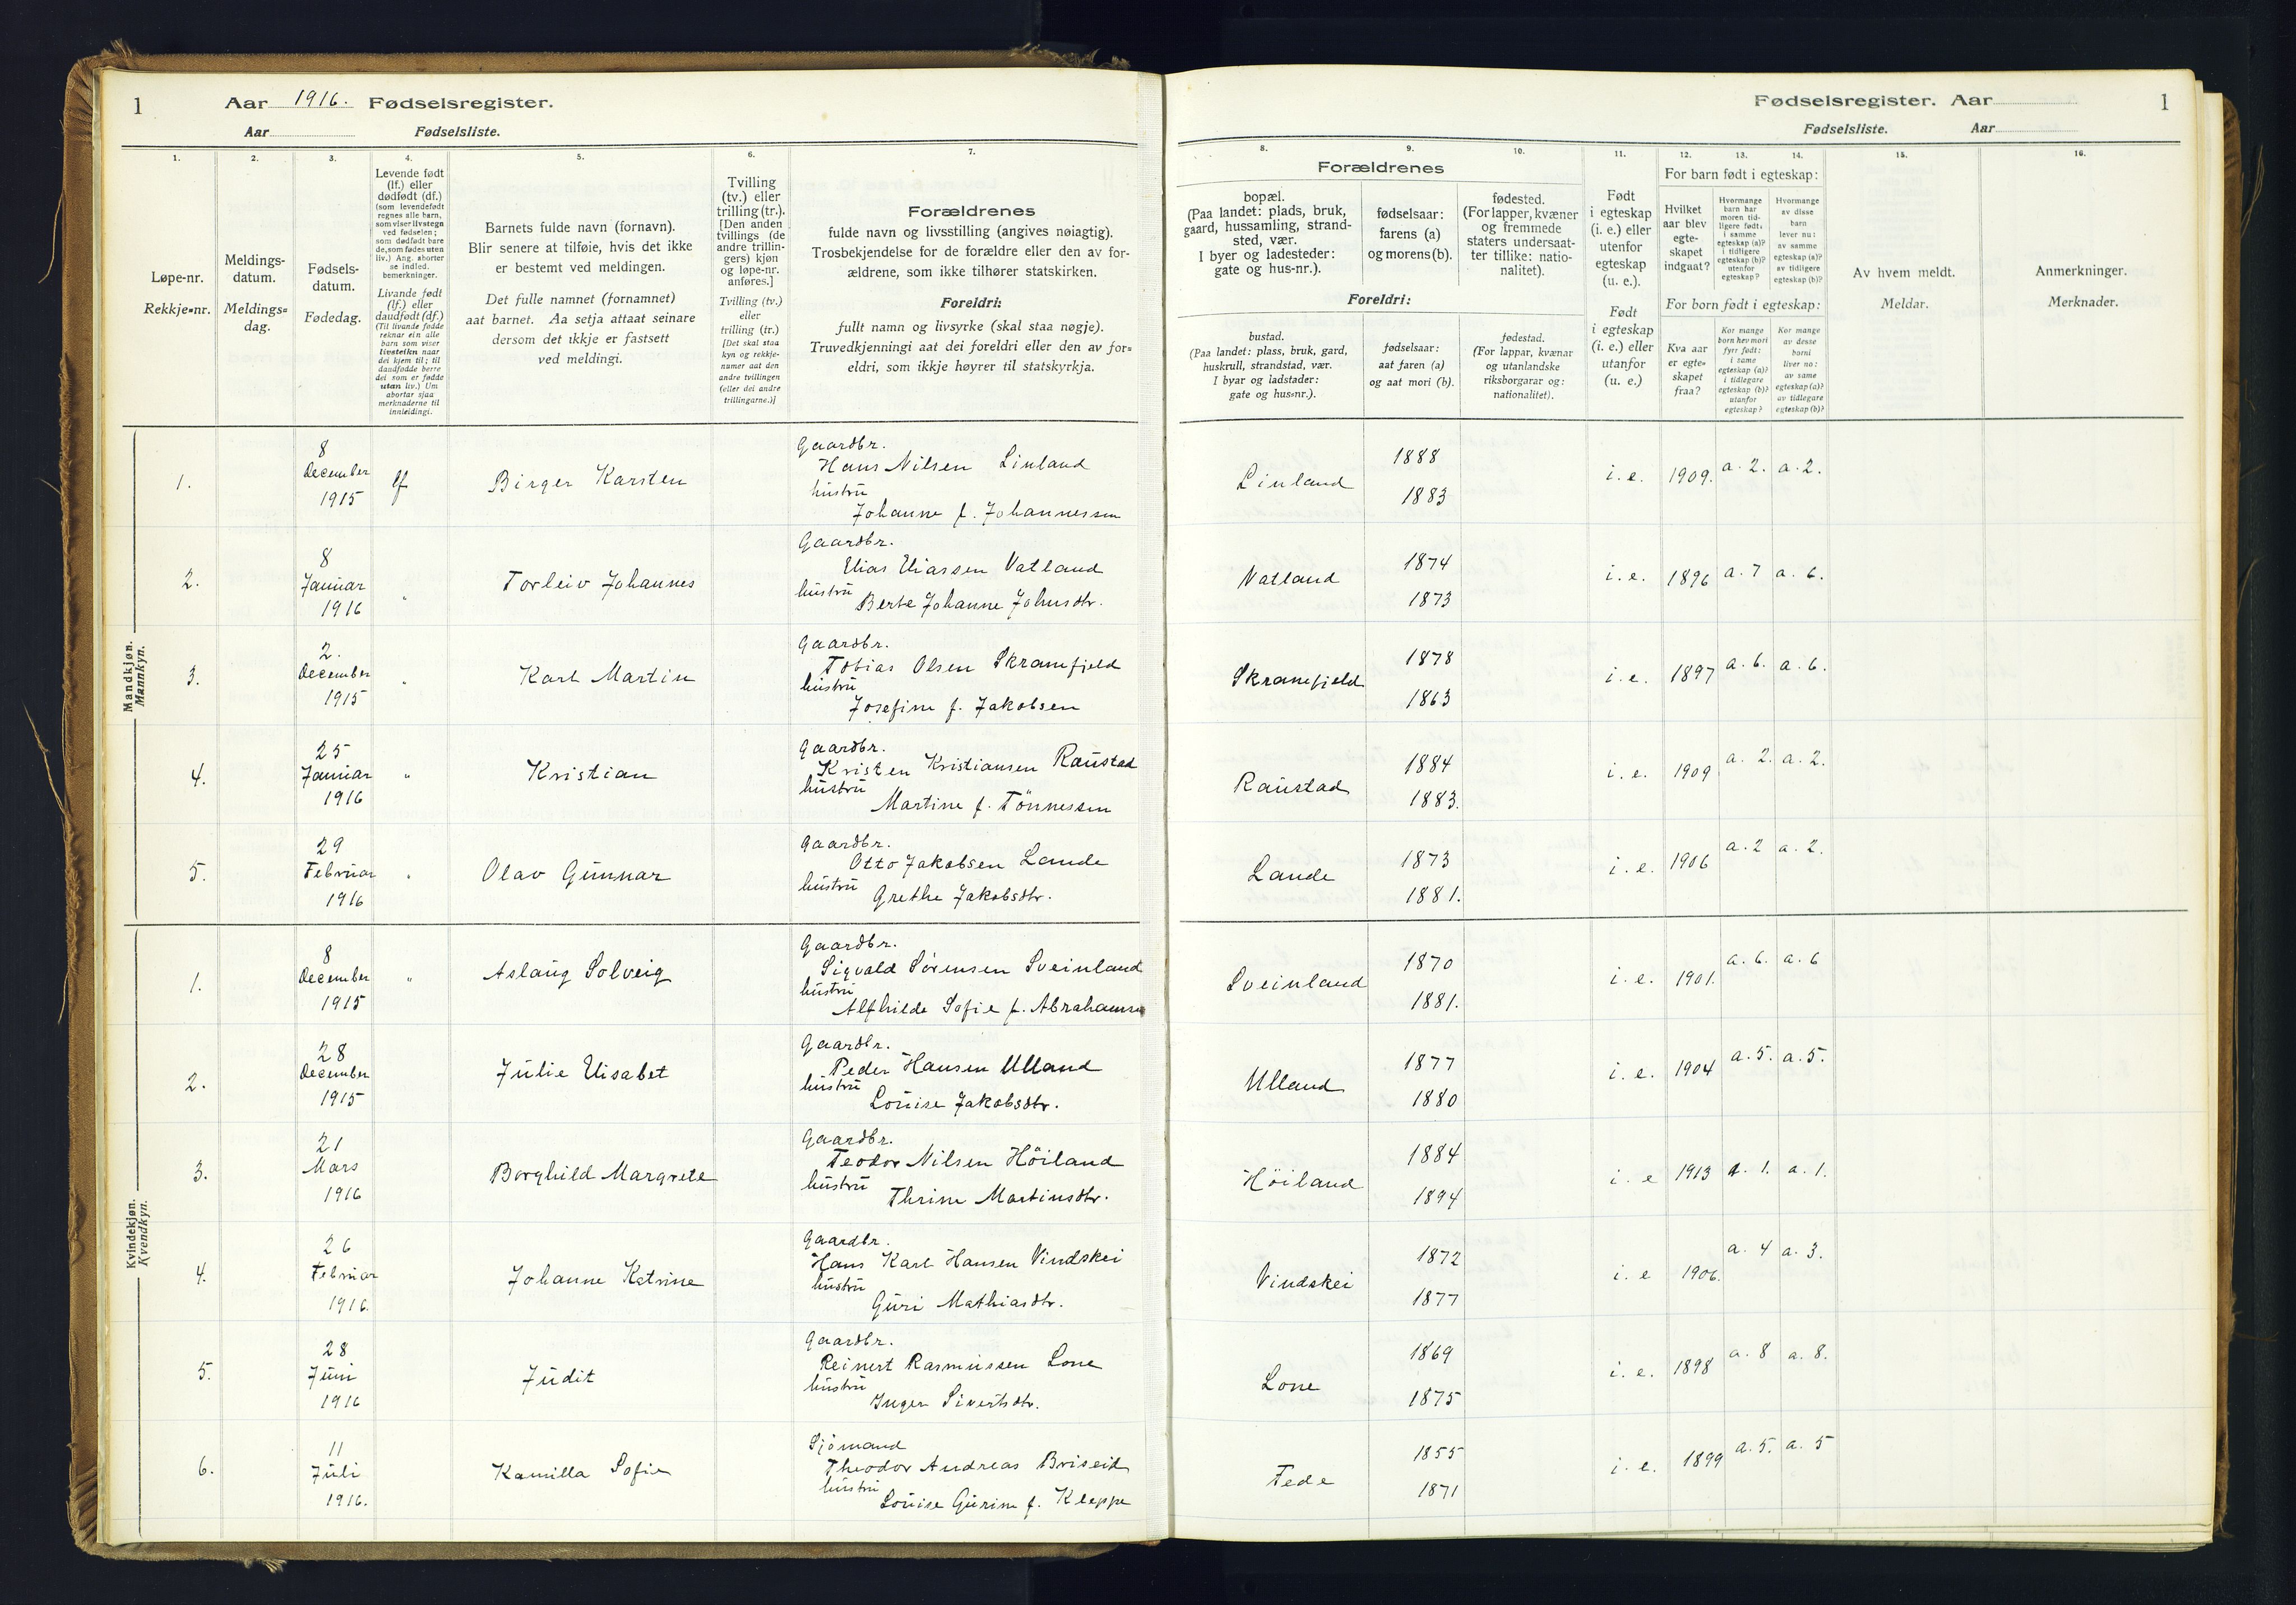 1
Aar 1916. Fødselsregister.
Aar Fødselsliste.
Fødselsregister. Aar
1
Fødselsliste. Aar
1.
Løpe-nr.
Rekkje-nr.
2.
Meldings-
datum.
Meldings-
dag.
3.
Fødsels-
datum.
Fødedag.
4.
Levende født
(lf.) eller
dødfødt (df.)
(som levendefødt
regnes alle barn,
som viser livstegn
ved fødselen;
som dødfødt bare
de, som fødes uten
liv.) Ang. aborter
se indled.
bemerkninger.
Livande født
(lf.) eller
daudfødt (df.)
(Til livande fødde
reknar ein alle
barn som viser
livsteikn naar
dei kjem til; til
daudfødde berre
dei som er fødde
utan liv.) Um
abortar sjaa
merknaderne til
innleidingi.
5.
Barnets fulde navn (fornavn).
Blir senere at tilføie, hvis det ikke
er bestemt ved meldingen.
Det fulle namnet (fornamnet)
aat barnet. Aa setja attaat seinare
dersom det ikkje er fastsett
ved meldingi.
6.
Tvilling
(tv.) eller
trilling (tr.).
[Den anden
tvillings (de
andre trillin-
gers) kjøn
og løpe-nr.
anføres.]
Tvilling (tv.)
eller
trilling (tr.)
[Det skal staa
kyn og rekkje-
numer aat den
andre tvillingen
(eller dei andre
trillingarne.)]
7.
Forældrenes
fulde navn og livsstilling (angives nøiagtig).
Trosbekjendelse for de forældre eller den av for-
ældrene, som ikke tilhører statskirken.
Foreldri:
fullt namn og livsyrke (skal staa nøgje).
Truvedkjenningi aat dei foreldri eller den av for-
eldri, som ikkje høyrer til statskyrkja.
Forældrenes
8.
bopæl.
(Paa landet: plads, bruk,
gaard, hussamling, strand-
sted, vær.
I byer og ladesteder:
gate og hus-nr.).
9.
fødselsaar:
farens (a)
og morens (b).
10.
fødested.
(For lapper, kvæner
og fremmede
staters undersaat-
ter tillike: natio-
nalitet).
Foreldri:
bustad.
(Paa landet: plass, bruk, gard,
huskrull, strandstad, vær.
I byar og ladstader:
gate og hus-nr.).
fødselsaar:
aat faren (a)
og aat mori (b).
fødestad.
(For lappar, kvænar
og utanlandske
riksborgarar og:
nationalitet).
11.
Født
i egteskap
(i. e.) eller
utenfor
egteskap
(u. e.).
Født
i egteskap
(i. e.) eller
utanfor
(u. e.)
12.
13.
14.
For barn født i egteskap:
Hvilket
aar blev
egte-
skapet
indgaat?
Hvormange
barn har
moren tid-
ligere født,
i samme
egteskap (a)?
i tidligere
egteskap (b)?
utenfor
egteskap?
Hvormange
av disse
barn
lever nu:
av samme
egteskap (a)?
av tidligere
egteskap (b)?
For born født i egteskap:
Kva aar
er egte-
skapet
fraa?
Kor mange
born hev mori
fyrr født:
i same
egteskap (a)?
i tidlegare
egteskap (b)?
utanfor
egteskap?
Kor mange
av desse
borni
liver no:
av same
egteskap (a)?
av tidlegare
egteskap (b)?
15.
Av hvem meldt.
Meldar.
16.
Anmerkninger.
Merknader.
Mandkjøn.
Mannkyn.
1. 8 December 1915 lf Birger Karsten
Gaardbr.
Hans Nilsen Linland
hustru
Johanne f. Johannessen
Linland 1888 1883 i. e. 1909. a. 2. a. 2.
2. 8 Januar 1916 " Torleiv Johannes
Gaardbr.
Elias Eliassen Vatland
hustru
Berte Johanne Johnsdtr.
Vatland 1874 1873 i. e. 1896 a. 7 a. 6.
3. 2. December 1915 " Karl Martin
Gaardbr.
Tobias Olsen Skranefjeld
hustru
Josefine f. Jakobsen
Skranefjeld 1878 1863 i. e. 1897 a. 6. a. 6.
4. 25 Januar 1916 " Kristian
Gaardbr.
Kristen Kristiansen Raustad
hustru
Martine f. Tönnessen
Raustad 1884 1883. i. e. 1909 a. 2. a. 2.
5. 29 Februar 1916 " Olav Gunnar
Gaardbr.
Otto Jakobsen Lande
hustru
Grethe Jakobsdtr.
Lande 1873 1881. i. e. 1906 a. 2 a. 2.
Kvindekjøn.
Kvendkyn.
1. 8 December 1915 " Aslaug Solveig
Gaardbr.
Sigvald Sörensen Sveinland
hustru
Alfhilde Sofie f. Abrahamsen
Sveinland 1870 1881. i. e. 1901. a. 6. a. 6
2. 28 December 1915 Julie Elisabet
Gaardbr.
Peder Hansen Ulland
hustru
Louise Jakobsdtr.
Ulland 1877 1880 i. e. 1904 a. 5. a. 5.
3. 21 Mars 1916 Borghild Margrete
Gaardbr.
Teodor Nilsen Höiland
hustru
Thrine Martinsdtr.
Höiland 1884 1894 i. e 1913 a. 1. a. 1.
4. 26 Februar 1916. Johanne Katrine
Gaardbr.
Hans Karl Hansen Vindskei
hustru
Guri Mathiasdtr.
Vindskei 1872 1877 i. e 1906. a. 4 a. 3.
5. 28 Juni 1916 Judit
Gaardbr.
Reinert Rasmussen Lone
hustru
Inger Sivertsdtr.
Lone 1869 1875 i. e. 1898 a. 8 a. 8.
6. 11 Juli 1916. Kamilla Sofie
Sjömand
Theodor Andreas Briseid
hustru
Louise Gurine f. Kleppe
Fede 1855 1871 i. e. 1899 a. 5. a. 5